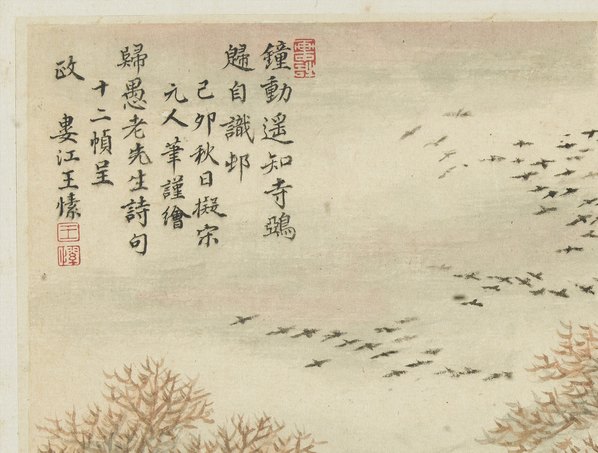 鐘動遥知寺鵶
歸自識邨
己卯秋日擬宋
元人筆謹繪
歸愚老先生詩句
十二幀呈
政
婁江王愫
王
愫